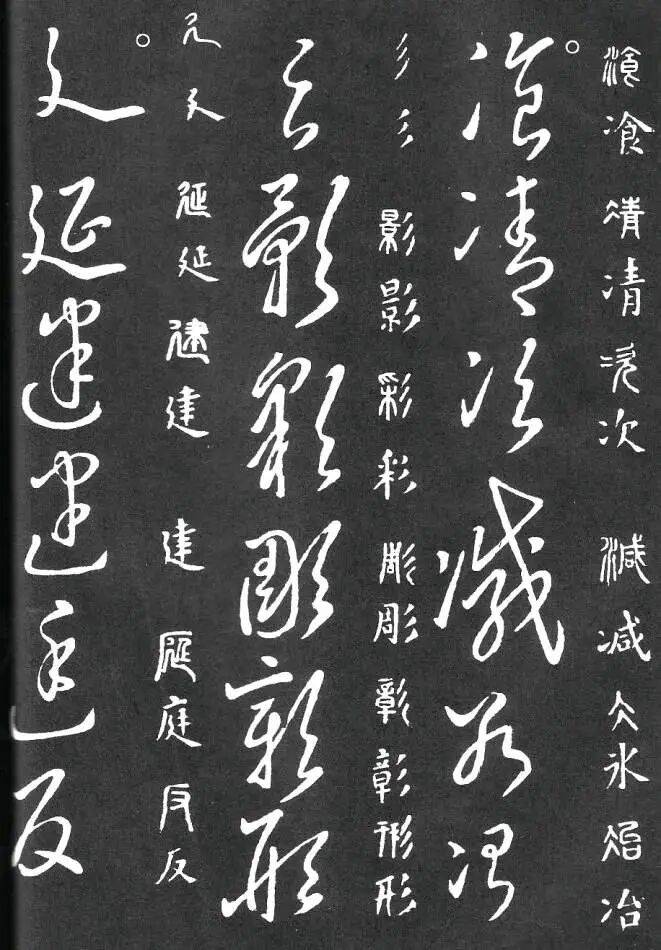 飡凊凊次次減减仌氷冶冶
飡凊次减冰冶
彡彡影影彩彩彫彫彰彰形形
彡影彩彫彰形
廴廴延延建建建庭庭反反
廴延建建庭反